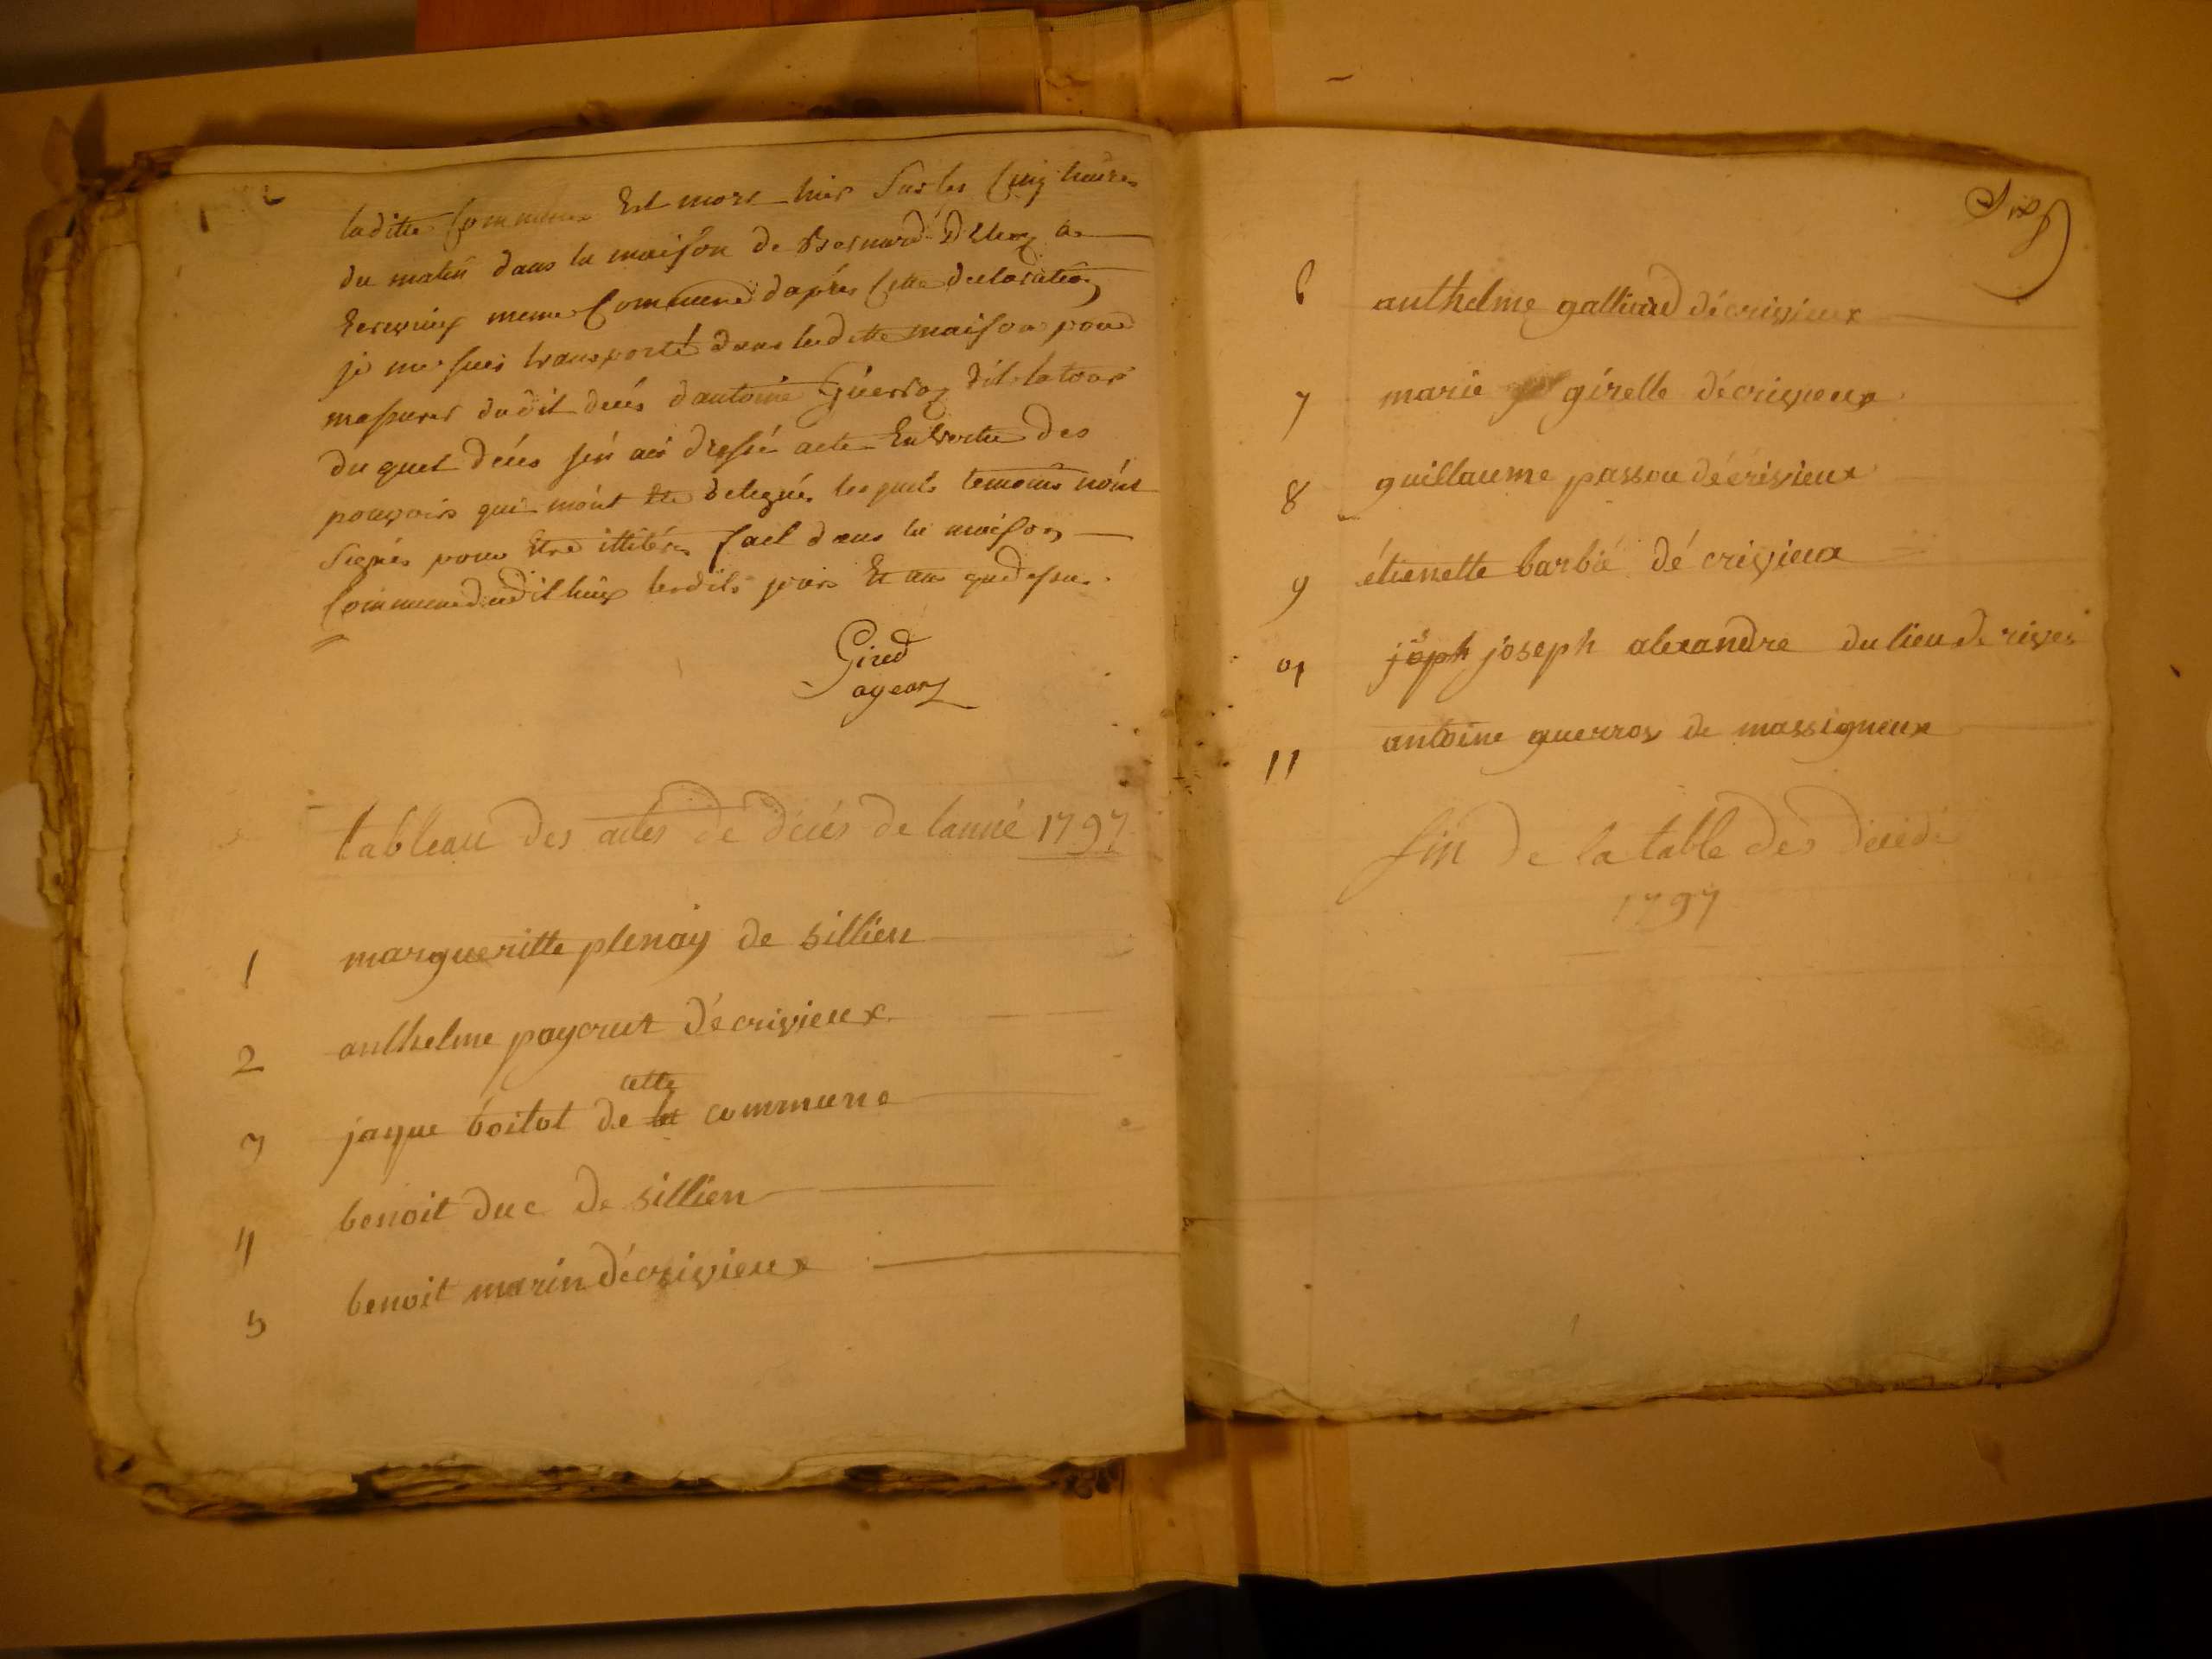 laditte Commune Est mort hier Sur les Cinq heures
du matin dans la maison de Bernard a
Ecrevieux meme Commune d'après Cette declaration
je me suis transporté dans ladette maison pour
massurer dudit decés dantoine Guerroz dit latour
du quel decés jén ai dressé acte En vertu des
pouvoirs qui mónt été delegués lesquels temoins nónt
Signés pour Etre illitérés fait dans la maison
Commune dudit lieux lesdits jours Et an que dessu.
Gired
ageorz
tableau des actes de décés de lanné 1797
1 margueritte plenay de sillien
2 anthelme paycrut décrivieux
cette
3 jaque boitot de la commune
4 benoit duc de sillien
5 benoit marin décrivieux
Six
6 anthelme galliard décrivieux
7 marie girelle décrivieux
8 guillaume passou décrivieux
9 étienette barbié dé crivieux
joph joseph alexandre du lieu de rives
11 antoine guerros de massigneux
fin de la table des décédé
1797